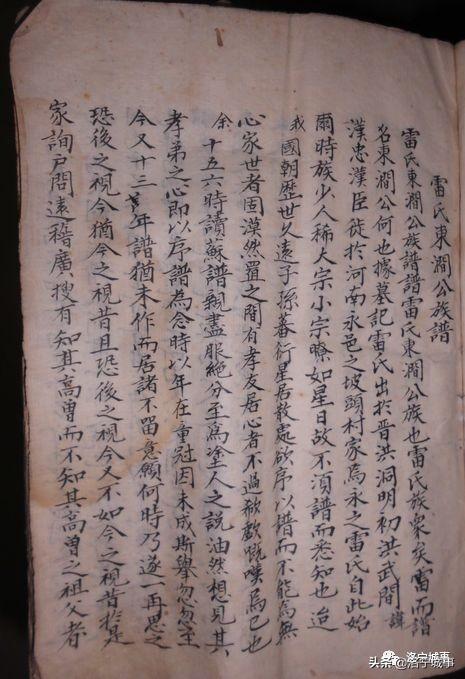 雷氏東澗公族譜
雷氏東澗公族譜譜雷氏東澗公族也雷氏族衆矣雷而譜
名東澗公何也據墓記雷氏出於晋洪洞明初洪武間諱
漢忠漢臣徙於河南永邑之坡頭村家焉永之雷氏自此始
爾時族少人稀大宗小宗瞭如星日故不須譜而悉知也迨
我國朝歷世久遠子孫蕃衍星居散處欲序以譜而不能焉無
心家世者固漠然置之間有孝友居心者不過欷歔慨嘆焉已也
余十五六時讀蘇譜親盡服絕分至為塗人之説油然想見其
孝弟之心即以序譜為念時以年在童冠因未成斯舉忽忽至
今又十三年譜猶未作而居諸不留意顧何時乃遂一再思之
恐後之視今猶今之視昔且恐後之視今又不如今之視昔於是
家詢户問遠稽廣搜有知其高曽而不知其高曽之祖父者
头条@洛宁城事
洛宁城事